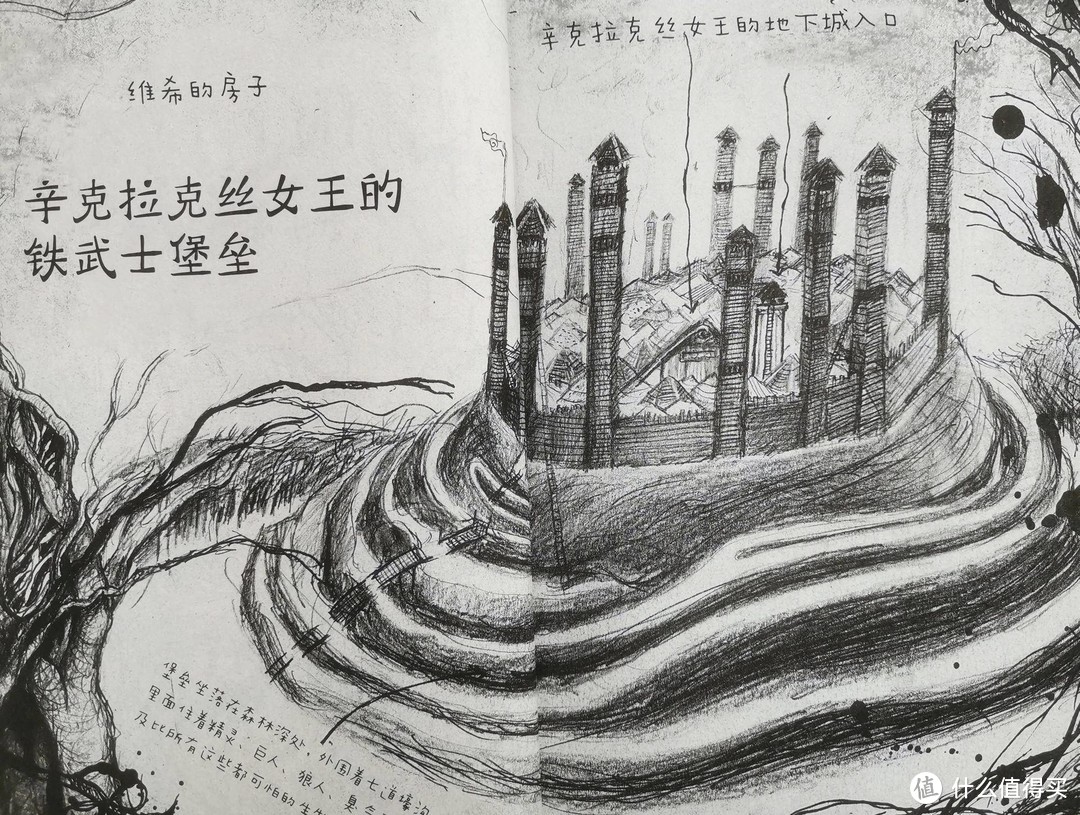 维希的房子
辛克拉克丝女王的地下城入口
辛克拉克丝女王的
铁武士堡垒
堡垒坐落在森林深处，外围着七道壕沟
里面住着精灵、巨人、狼人、臭
及比所有这些都可怕的生
值 什么值得买